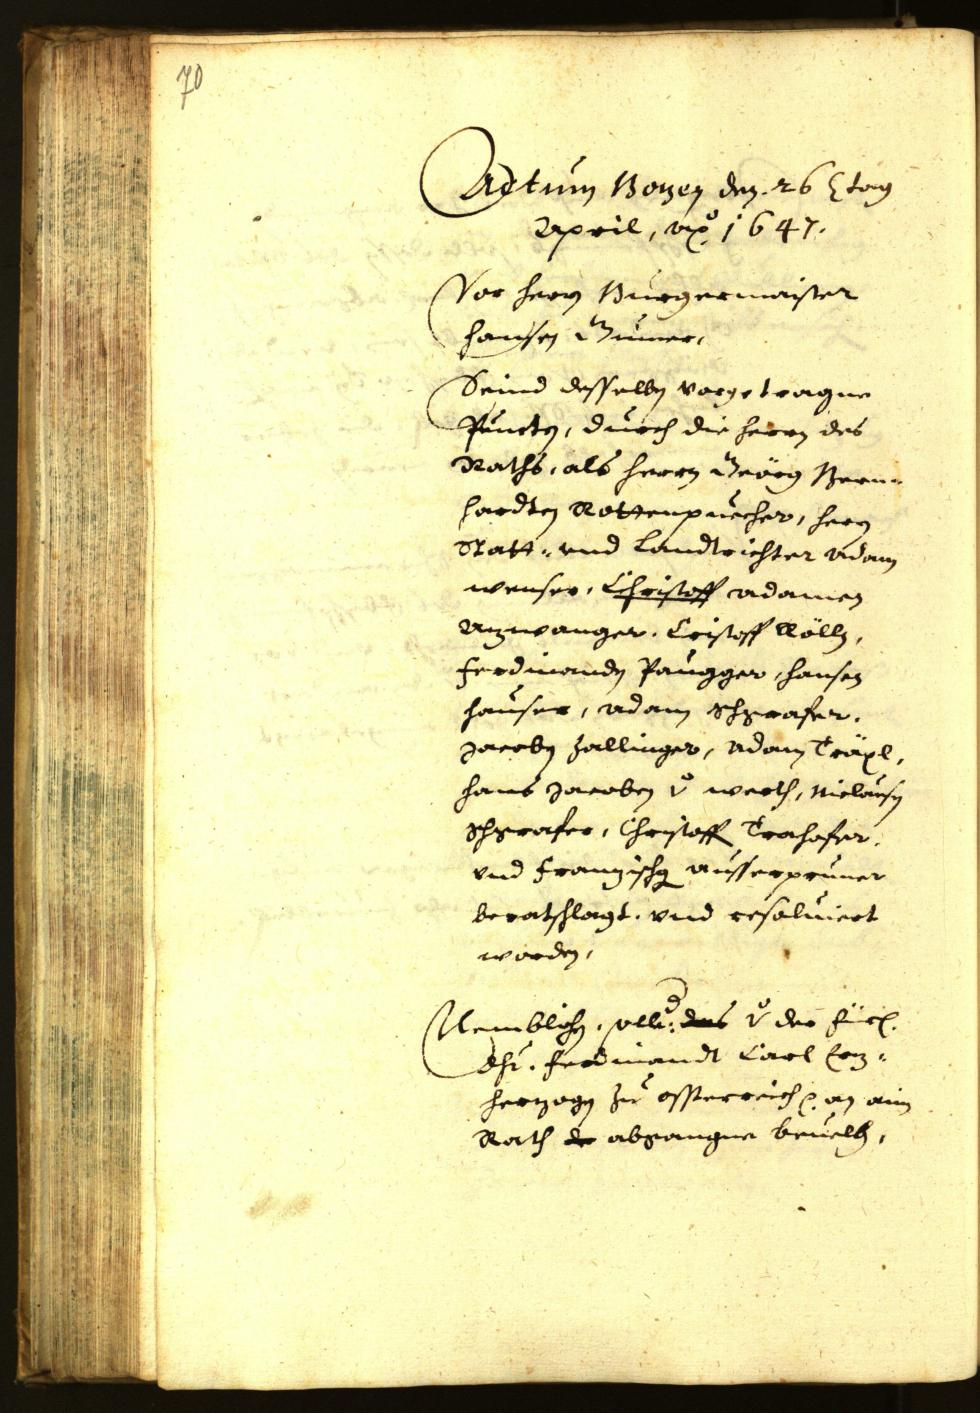 70
Actum Bozen den. 26 tag
April, ao. 1647.
Vor herrn Burgermaister
Hansen Gumer,
Seind desselben vorgetragne
Puncten, durch die herrn des
Raths, als herrn Geörg Bern-
hardten Rottenpuecher, herrn
Statt- und Landtrichter Adam
Wenser, Christoff Adamen
Anzwanger. Cristoff Röllz,
Ferdinanden Paugger, Hansen
Hauser, Adam Schgrafer.
Jacoben Zallinger, Adam Träpl,
Hans Jacoben v. Werth, Niclausen
Schgrafer, Christoff Trahofer.
und Franzischg Ausserpruner
beratschlagt. und resolviert
worden,
Nemblichen, der Fürl.
Dht. Ferdinandt Carl Erz-
herzogen zu Össterreich an ain
Rath abgangne bevelch,